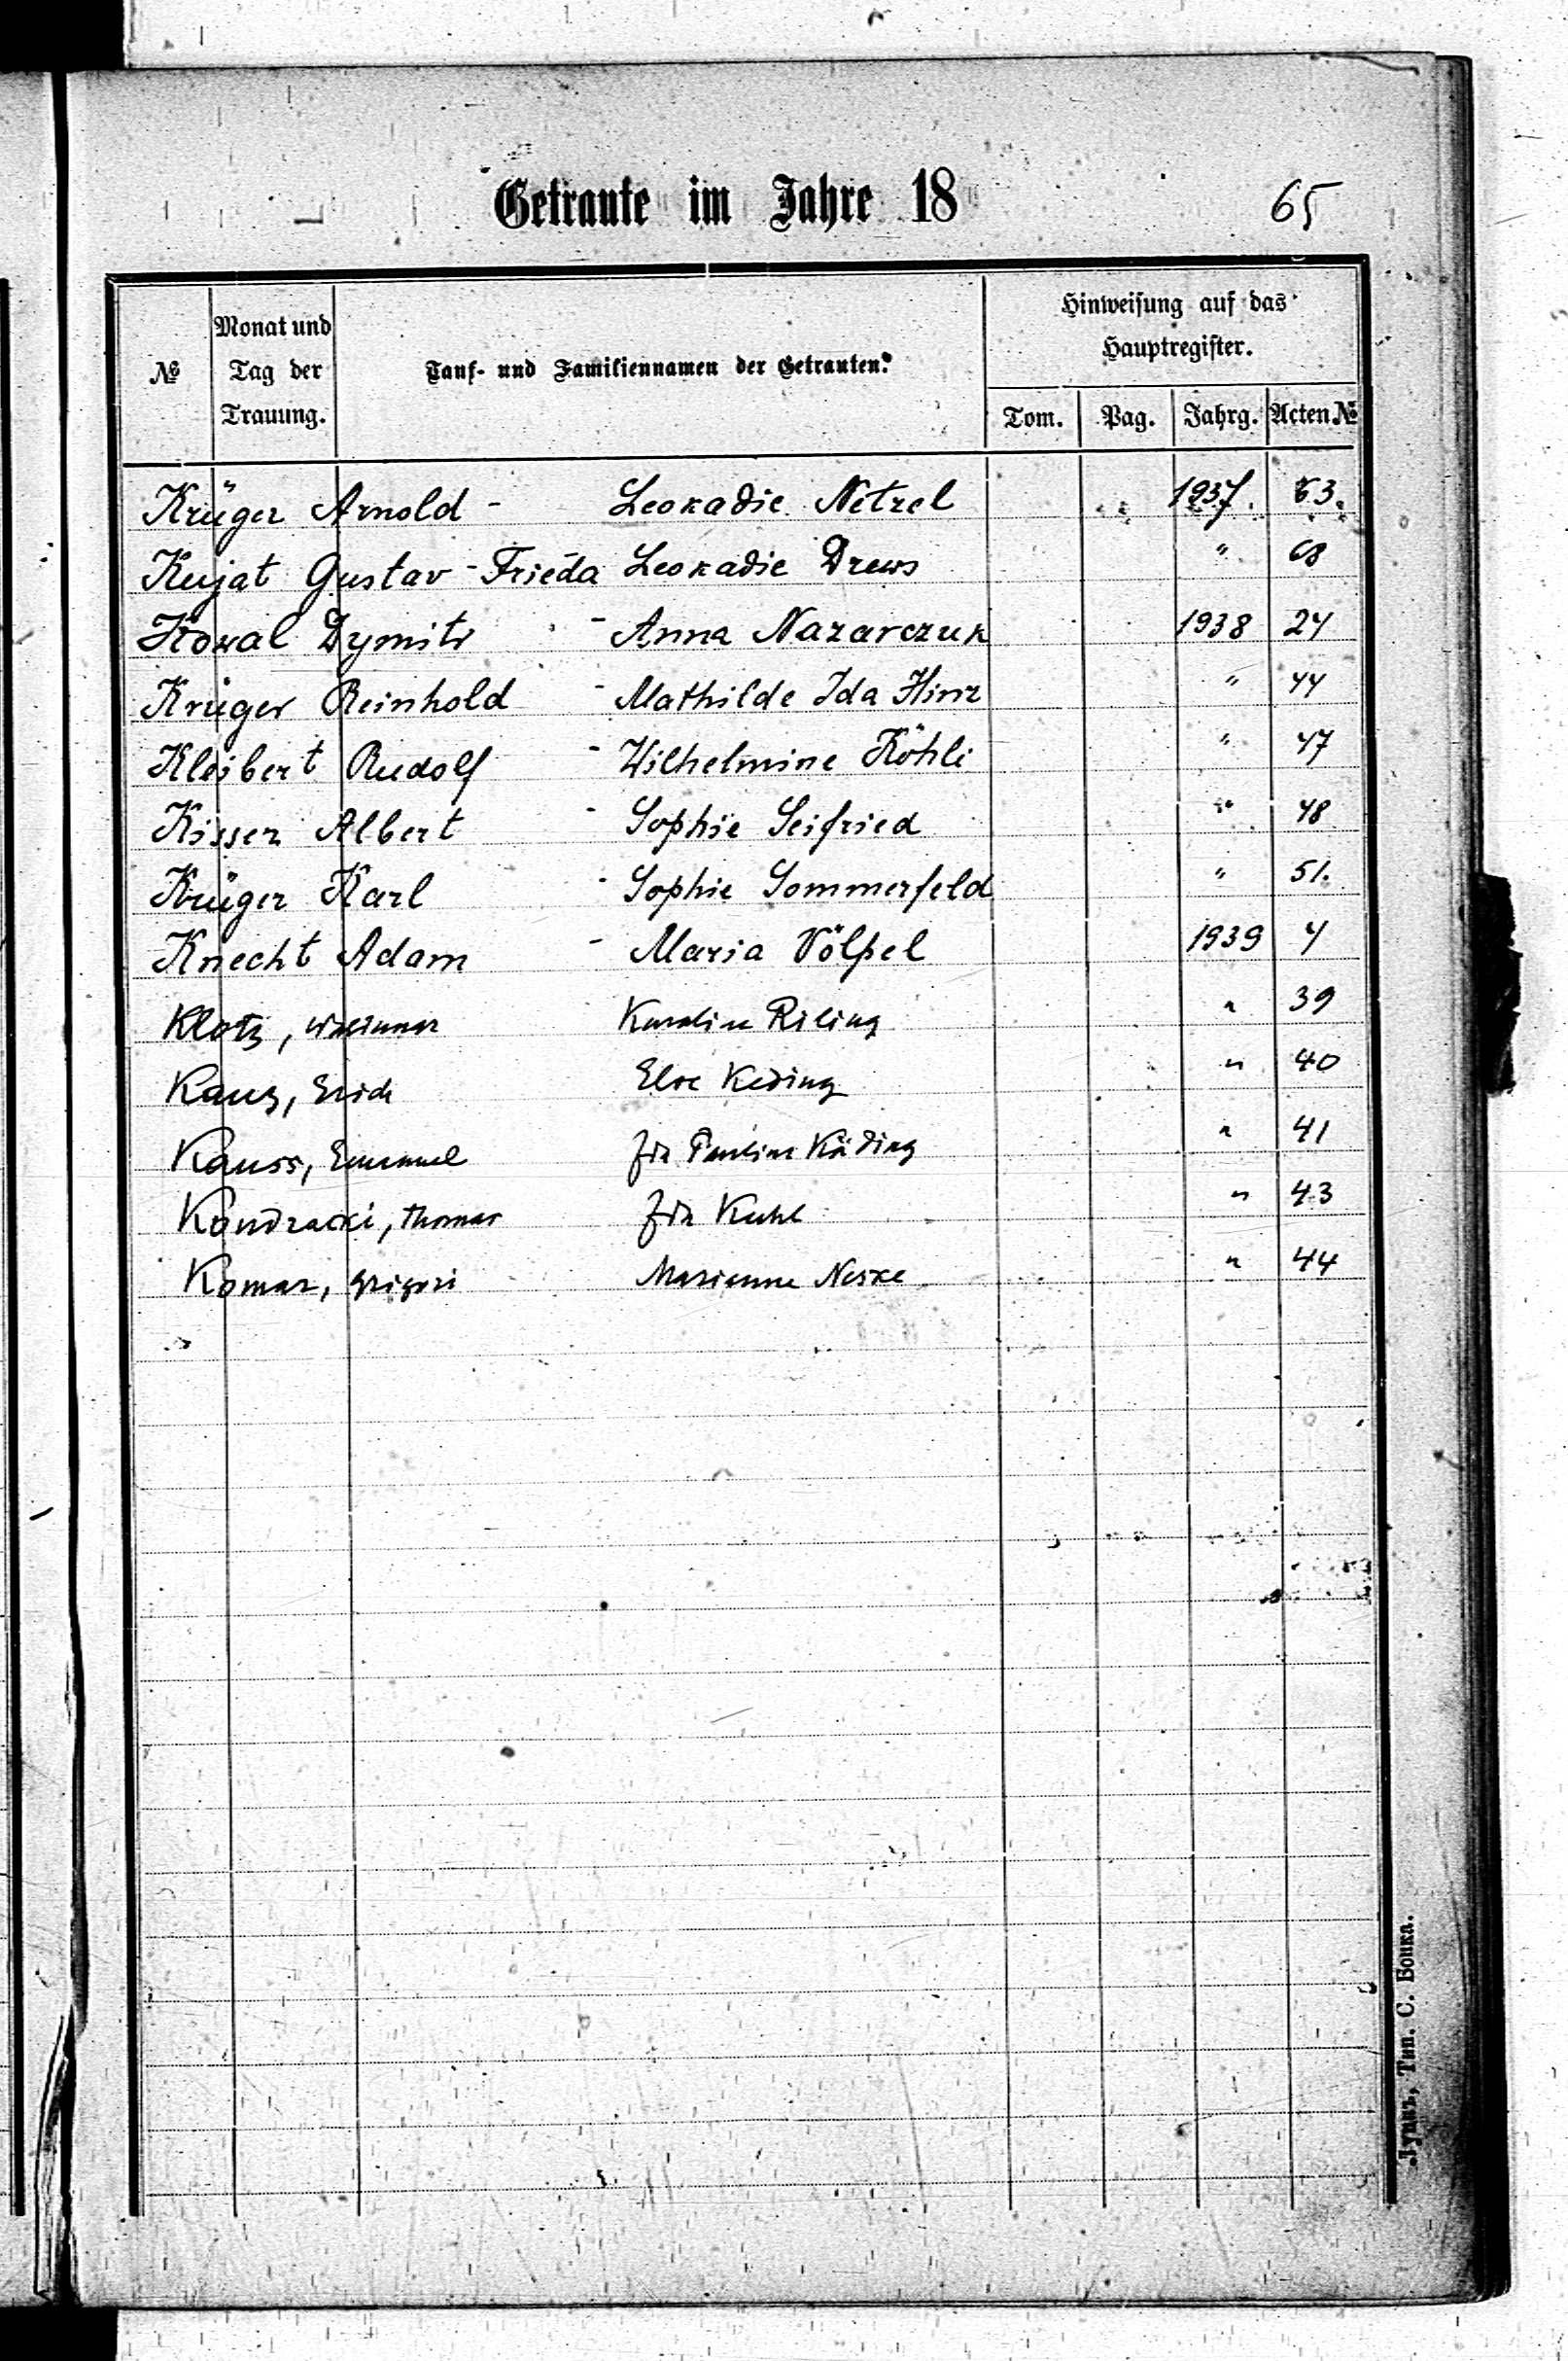 Getraute im Jahre 18
65
№ Monat und Tag der Trauung. Tauf- und Familiennamen der Getrauten. Hinweisung auf das Hauptregister.
Tom. Pag. Jahrg. Acten №
Krüger Arnold - Leokadie Netzel 1937. 63.
Kujat Gustav - Frieda Leokadie Drews " 68
Kowal Dymitr - Anna Nazarczuk 1938 24
Krüger Reinhold - Mathilde Ida Hinz " 44
Kleibert Rudolf - Wilhelmine Köhli " 47
Kisser Albert - Sophie Seifried " 48
Krüger Karl - Sophie Sommerfeld " 51.
Knecht Adam - Maria Völpel 1939 4
Klotz, Karoline Riling " 39
Kauz, Erich Else Keding " 40
Kauss, Emanuel Ida Pauline Käding " 41
Kondracki, Thomas Ida Kuhl " 43
Komar, Grigori Marianne Neske " 44
Луцкъ, Тип. С. Бокка.